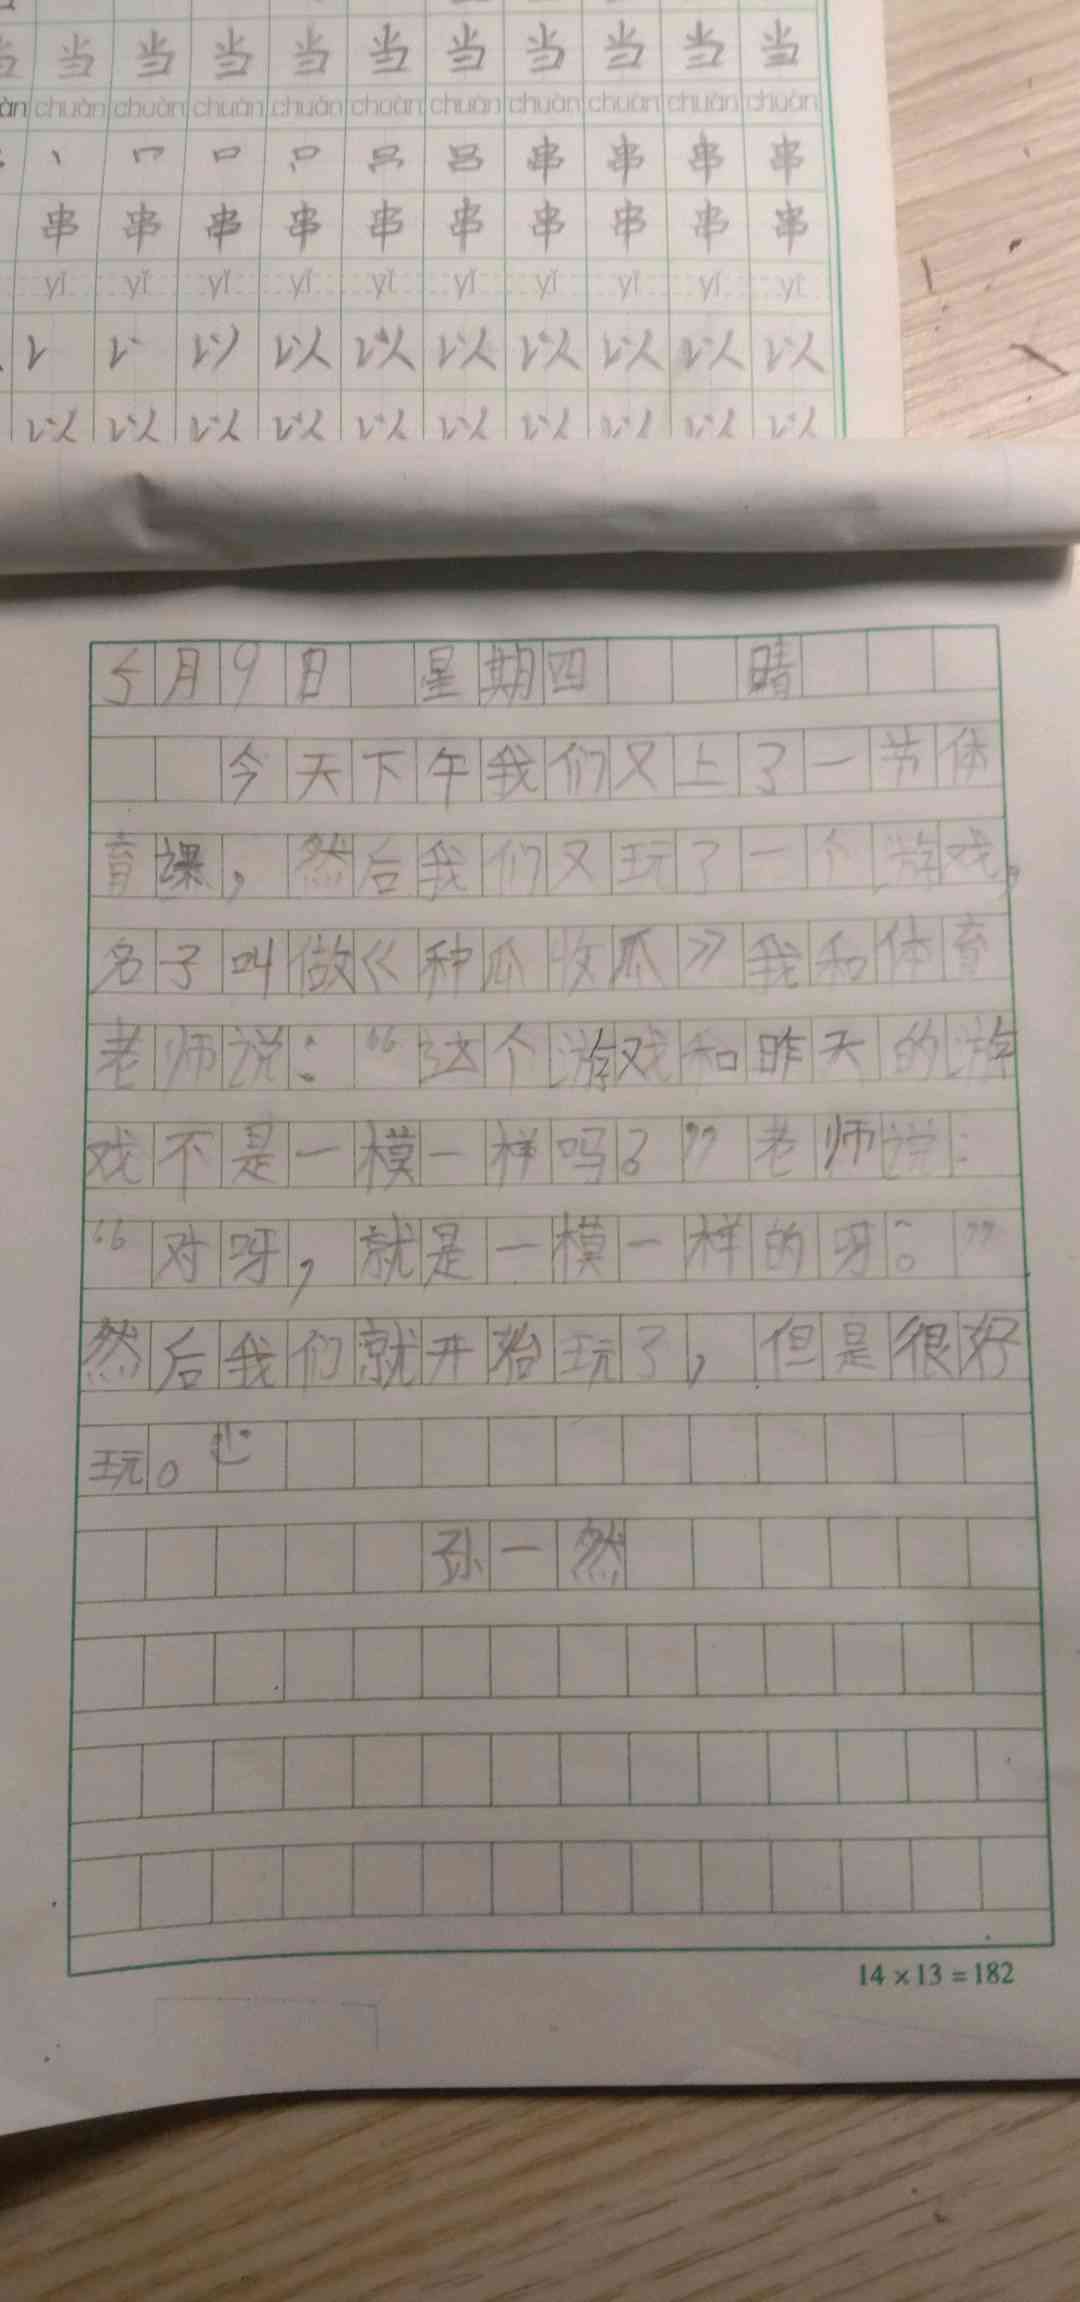 当 当 当 当 当 当 当 当 当 当
chuàn chuàn chuàn chuàn chuàn chuàn chuàn chuàn chuàn chuàn
丶 口 口 口 吕 吕 串 串 串 串
串 串 串 串 串 串 串 串 串 串
yǐ yǐ yǐ yǐ yǐ yǐ yǐ yǐ yǐ yǐ
以 以 以 以 以 以 以
以 以 以 以 以 以 以 以 以 以
5月9日 星期四 晴
今天下午我们又上了一节体
育课，然后我们又玩了一个游戏，
名子叫做《种瓜收瓜》我和体育
老师说：“这个游戏和昨天的游
戏不是一模一样吗？”老师说：
“对呀，就是一模一样的呀。”
然后我们就开始玩了，但是很好
玩。
孙一然
14×13=182